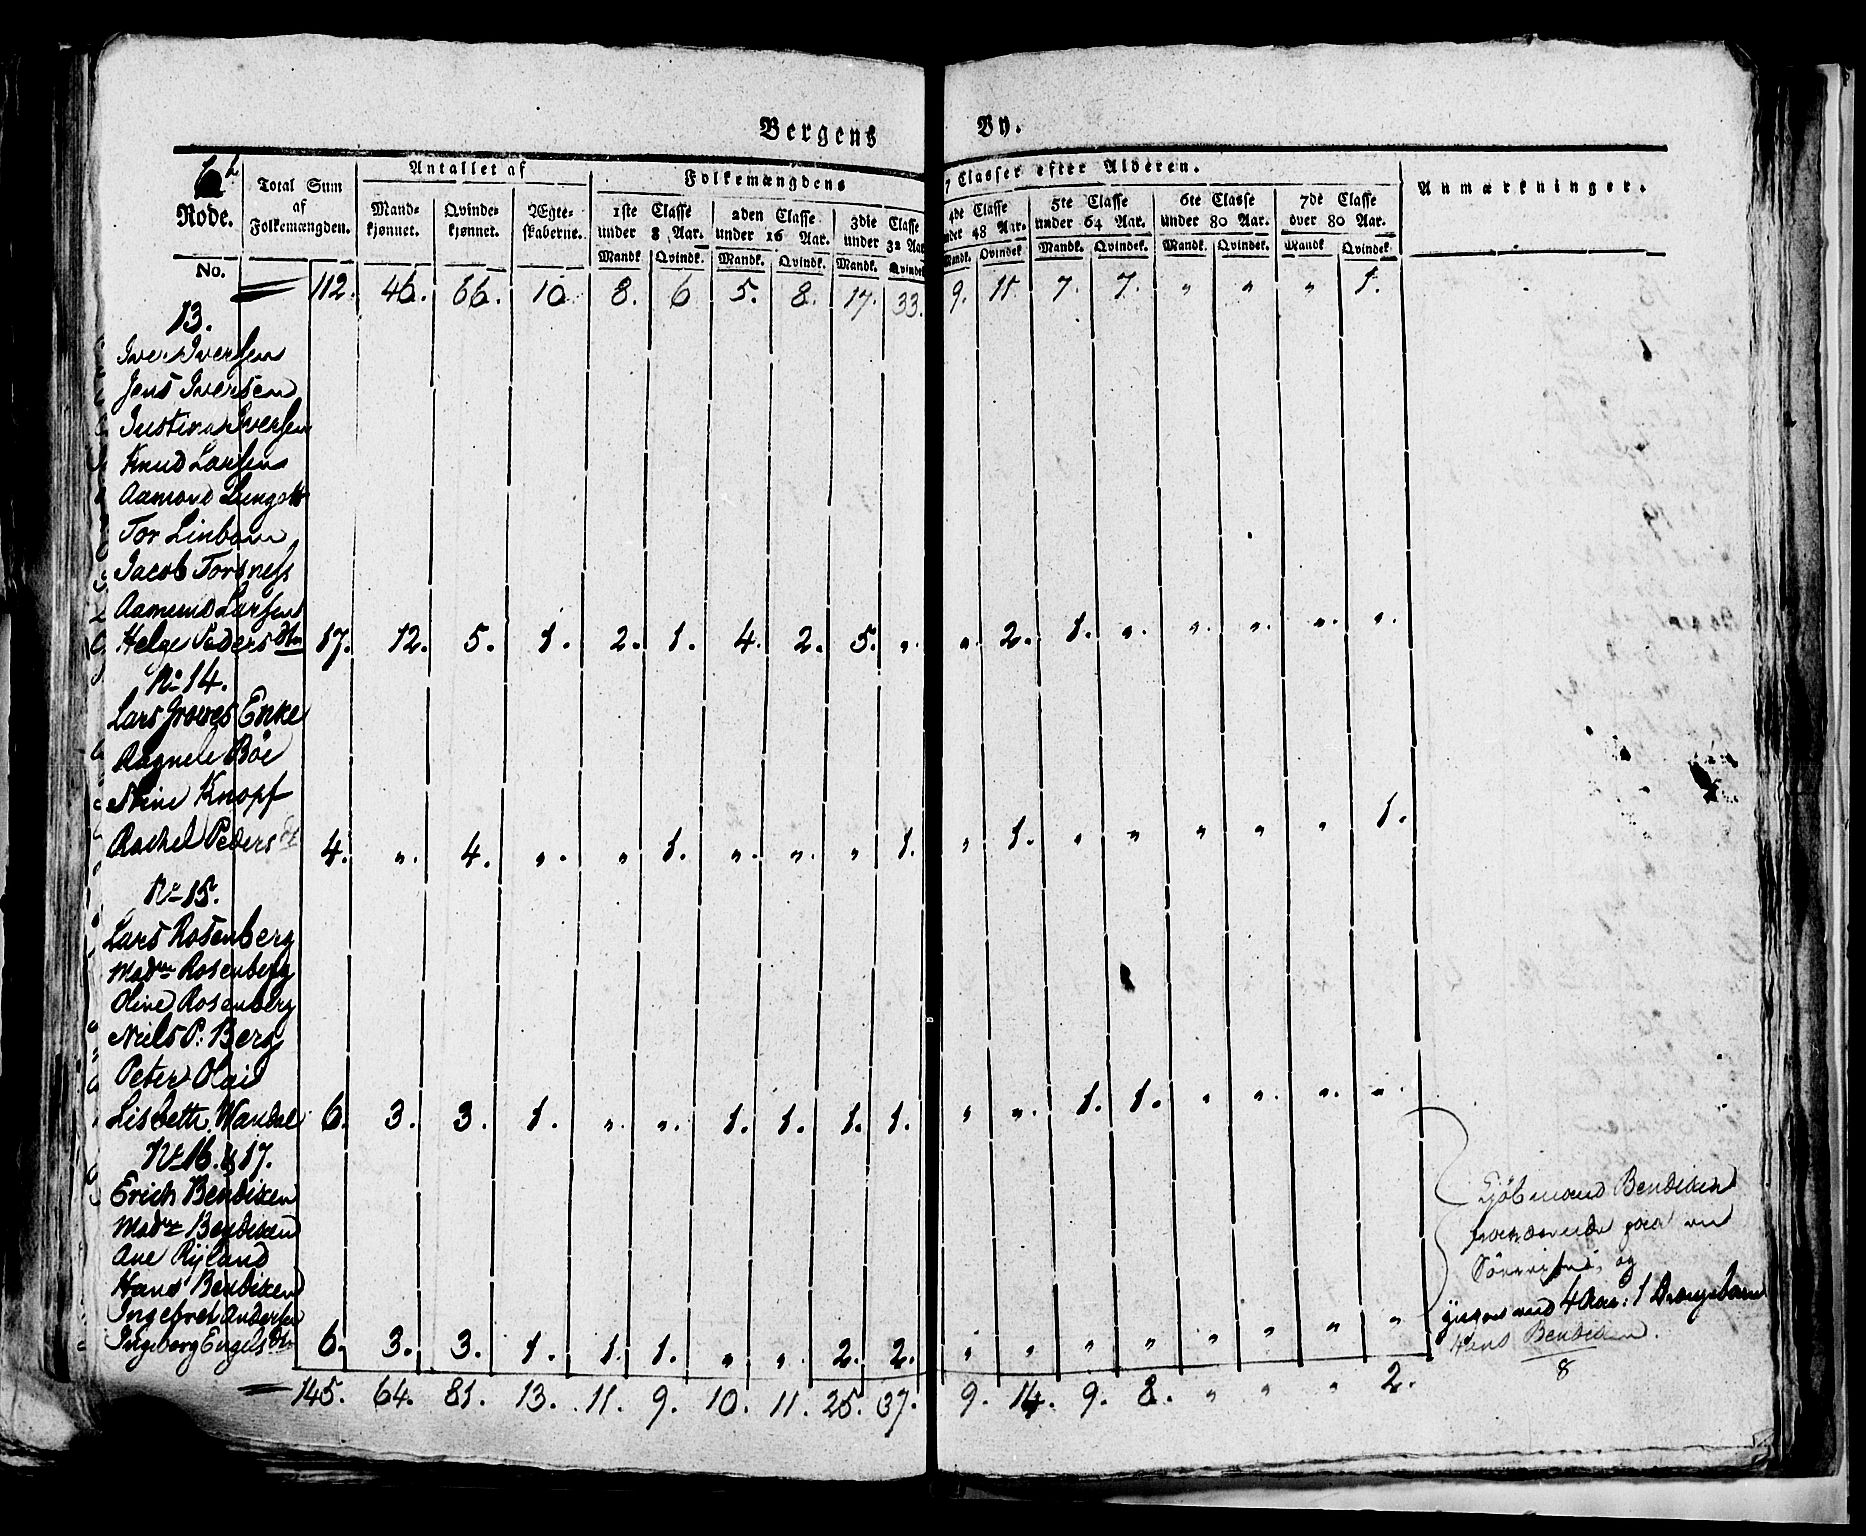 Bergens By.
6te Rode.
No.
Total Sum af Folkemængden.
Antallet af
Mandkjønnet. Qvindekjønnet. Ægteskaberne.
Folkemængdens 7 Classer efter Alderen.
1ste Classe under 8 Aar. 2den Classe under 16 Aar. 3die Classe under 32 Aar. 4de Classe under 48 Aar. 5te Classe under 64 Aar. 6te Classe under 80 Aar. 7de Classe over 80 Aar.
Mandk. Qvindk. Mandk. Qvindk. Mandk. Qvindek. Mandk. Qvindek. Mandk. Qvindek. Mandk. Qvindek. Mandk. Qvindek.
Anmærkninger.
112. 46. 66. 10 8. 6 5. 8. 17. 33. 9. 11. 7. 7. " " " 1.
13.
Iver Iversen
Jens Iversen
Justina Iversen
Knud Larsen
Aamond
Tor Linbom
Jacob Torsness
Aamund Larsen
Helge Peders Dtr 17. 12. 5. 1. 2. 1. 4. 2. 5. " " 2. 1. " " " " "
No 14.
Lars Groves Enke
Ragnele Böe
Stine Knopf
Rachel Peders Dt 4. " 4. " " 1. " " " 1. " 1. " " " " " 1.
No 15.
Lars Rosenberg
Madme Rosenberg
Oline Rosenberg
Niels P: Berg
Peter Olai
Lisbeth Wandal 6. 3. 3. 1. " " 1. 1. 1. 1. " " 1. 1. " " " "
No 16. & 17.
Erich Bendixen
Madme Bendixen
Ane Ryland
Hans Bendixen
Ingebret Andersen
Ingeborg Engels Dtr 6. 3. 3. 1. 1. 1. " " 2. 2. " " " " " " " "
Kjöbmand Bendixen
paa en
og
4 Aar: 1 Drengebarn
Hans Bendixen.
8
145. 64. 81. 13. 11. 9. 10. 11. 25. 37. 9. 14. 9. 8. " " " 2.